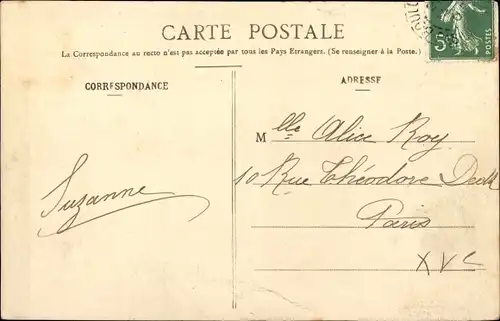 CARTE POSTALE
La Correspondance au recto n'est pas acceptée par tous les Pays Etrangers. (Se renseigner à la Poste.)
CORRESPONDANCE
ADRESSE
Mlle Alice Roy
10 Rue Théodore Deck
Paris
XVe
Suzanne
5c
POSTES